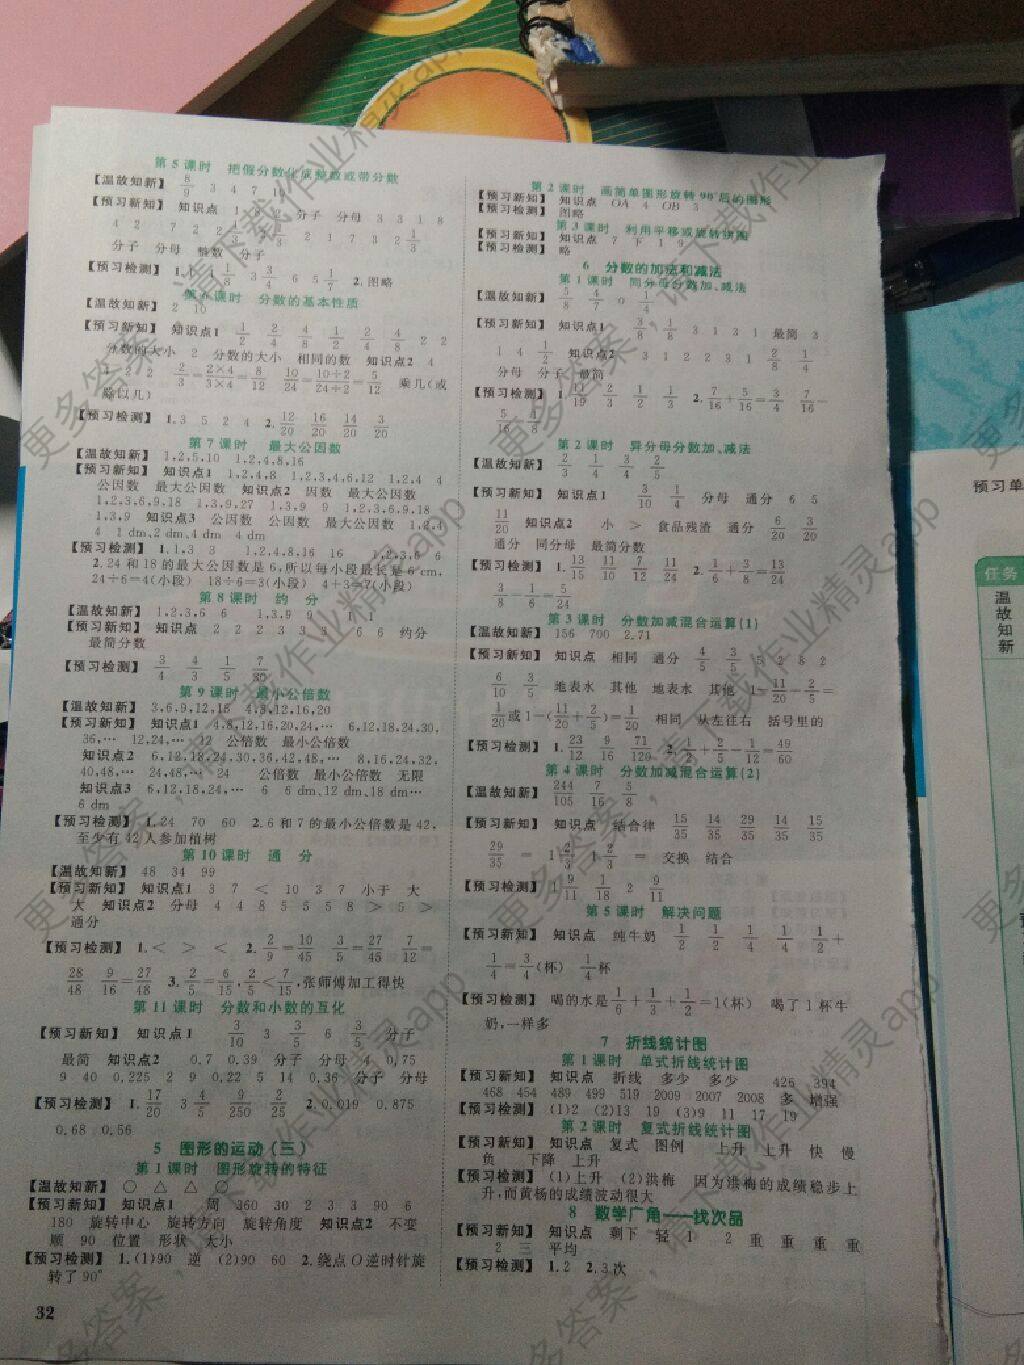 第5课时 把假分数化成整数或带分数
【温故知新】 8/9 3 4 7
【预习新知】 知识点 分子 分母 3 3 1 8
分子 分母 整数 分子
【预习检测】 3 3/4 6 5 1/7 2.图略
第6课时 分数的基本性质
【温故知新】 2 10
【预习新知】 知识点1 1/2 2/4 4/8 1/2 2/4 4/8 2 2
分数的大小 2 分数的大小 相同的数 知识点2 4
2 2 2/3=2×4/3×4=8/12 10/24=10÷2/24÷2=5/12 乘几(或
除以几)
【预习检测】 1.3 5 2 4 2.12/20 16/20 14/20 3/20
第7课时 最大公因数
【温故知新】 1,2,5,10 1,2,4,8,16
【预习新知】 知识点1 1,2,4,8 1,2,3,4,6,12 1,2,4 4
公因数 最大公因数 知识点2 因数 最大公因数
1,2,3,6,9,18 1,3,9,27 1,3,9 9 1,2,3,6,9,18
1,3,9 知识点3 公因数 公因数 最大公因数 1,2,4
4 1 dm,2 dm,4 dm 4 dm
【预习检测】 1.1,3 3 1,2,4,8,16 16 1,2,3,6 6
2.24和18的最大公因数是6,所以每小段最长是6 cm,
24÷6=4(小段) 18÷6=3(小段) 4+3=7(小段)
第8课时 约 分
【温故知新】 1,2,3,6 6 1,3,9 9 1
【预习新知】 知识点 2 2 2 3 3 3 6 6 约分
最简分数
【预习检测】 3/4 4/3 1/5 7/30
第9课时 最小公倍数
【温故知新】 3,6,9,12,15 4,8,12,16,20
【预习新知】 知识点1 4,8,12,16,20,24,… 6,12,18,24,30,
36,… 12,24,… 12 公倍数 最小公倍数
知识点2 6,12,18,24,30,36,42,48,… 8,16,24,32,
40,48,… 24,48,… 24 公倍数 最小公倍数 无限
知识点3 6,12,18,24,… 6 6 dm、12 dm、18 dm…
6 dm
【预习检测】 1.24 70 60 2.6和7的最小公倍数是42,
至少有42人参加植树
第10课时 通 分
【温故知新】 48 34 99
【预习新知】 知识点1 3 7 < 10 3 7 小于 大
大 知识点2 分母 4 4 8 5 5 8 > 5 >
通分
【预习检测】 1.< > < 2.2/9=10/45 3/5=27/45 7/12=
28/48 9/16=27/48 3.2/5=6/15,2/5<7/15,张师傅加工得快
第11课时 分数和小数的互化
【预习新知】 知识点1 3/10 3 3/5 6 3/5 分子
最简 知识点2 0.7 0.39 分子 分母 4 0.75
9 40 0.225 2 9 0.22 5 14 0.36 分子 分母
【预习检测】 1.17/20 3 4/5 9/250 2/25 2.0.019 0.875
0.68 0.56
5 图形的运动(三)
第1课时 图形旋转的特征
【温故知新】 ○ △ △ ○
【预习新知】 知识点1 周 360 30 2 3 3 90 6
180 旋转中心 旋转方向 旋转角度 知识点2 不变
顺 90 位置 形状 大小
【预习检测】 1.(1)90 逆 (2)90 60 2.绕点O逆时针旋
转了90°
32
第2课时 画简单图形旋转90°后的图形
【预习新知】 知识点 OA 4 OB 3
【预习检测】 图略
第3课时 利用平移或旋转拼图
【预习新知】 知识点 7 下 1 9
【预习检测】 略
6 分数的加法和减法
第1课时 同分母分数加、减法
【温故知新】 5/8 4/7 0 1/4
【预习新知】 知识点1 3/8 1/8 3 1 3 1 最简 3
1 4 1/2 知识点2 3 1 2 2 3 1 2/8 1/4
分母 分子 最简
【预习检测】 1.11/19 2/3 1/2 1/3 2.7/16+5/16=3/4 7/16-
5/16=1/8
第2课时 异分母分数加、减法
【温故知新】 2/3 1/4 3/4 2/5
【预习新知】 知识点1 3/10 1/4 分母 通分 6 5
11/20 知识点2 小 > 食品残渣 通分 6/20 3/20
通分 同分母 最简分数
【预习检测】 1.13/15 11/10 7/12 11/24 2.1/6+3/8=13/24
3/8-1/6=5/24
第3课时 分数加减混合运算(1)
【温故知新】 156 700 2.71
【预习新知】 知识点 相同 通分 4/5 3/5 5 2 8 2
6/10 3/5 地表水 其他 地表水 其他 1-11/20-2/5=
1/20或1-(11/20+2/5)=1/20 相同 从左往右 括号里的
【预习检测】 1.23/12 9/16 71/120 2.1/2+2/5-1/12=49/60
第4课时 分数加减混合运算(2)
【温故知新】 244/105 7/16 5/8
【预习新知】 知识点 结合律 15/35 14/35 29/35 14/35 15/35
29/35 = 1 2/3 1 2/3 = 交换 结合
【预习检测】 1 9/11 1/18 2 9/11
第5课时 解决问题
【预习新知】 知识点 纯牛奶 1/2 1/2 1/4 1/4 1/2+
1/4=3/4(杯) 1/4杯
【预习检测】 喝的水是1/6+1/3+1/2=1(杯) 喝了1杯牛
奶,一样多
7 折线统计图
第1课时 单式折线统计图
【预习新知】 知识点 折线 多少 多少 425 394
468 454 489 499 519 2009 2007 2008 多 增强
【预习检测】 (1)2 (2)13 19 (3)9 11 17 19
第2课时 复式折线统计图
【预习新知】 知识点 复式 图例 上升 上升 快 慢
负 下降 上升
【预习检测】 (1)上升 (2)洪梅 因为洪梅的成绩稳步上
升,而黄杨的成绩波动很大
8 数学广角——找次品
【预习新知】 知识点 剩下 轻 1 2 重 重 重 重
2 三 平均
【预习检测】 1.2 2.3次
预习单
任务
温故知新
更多答案,请下载作业精灵app